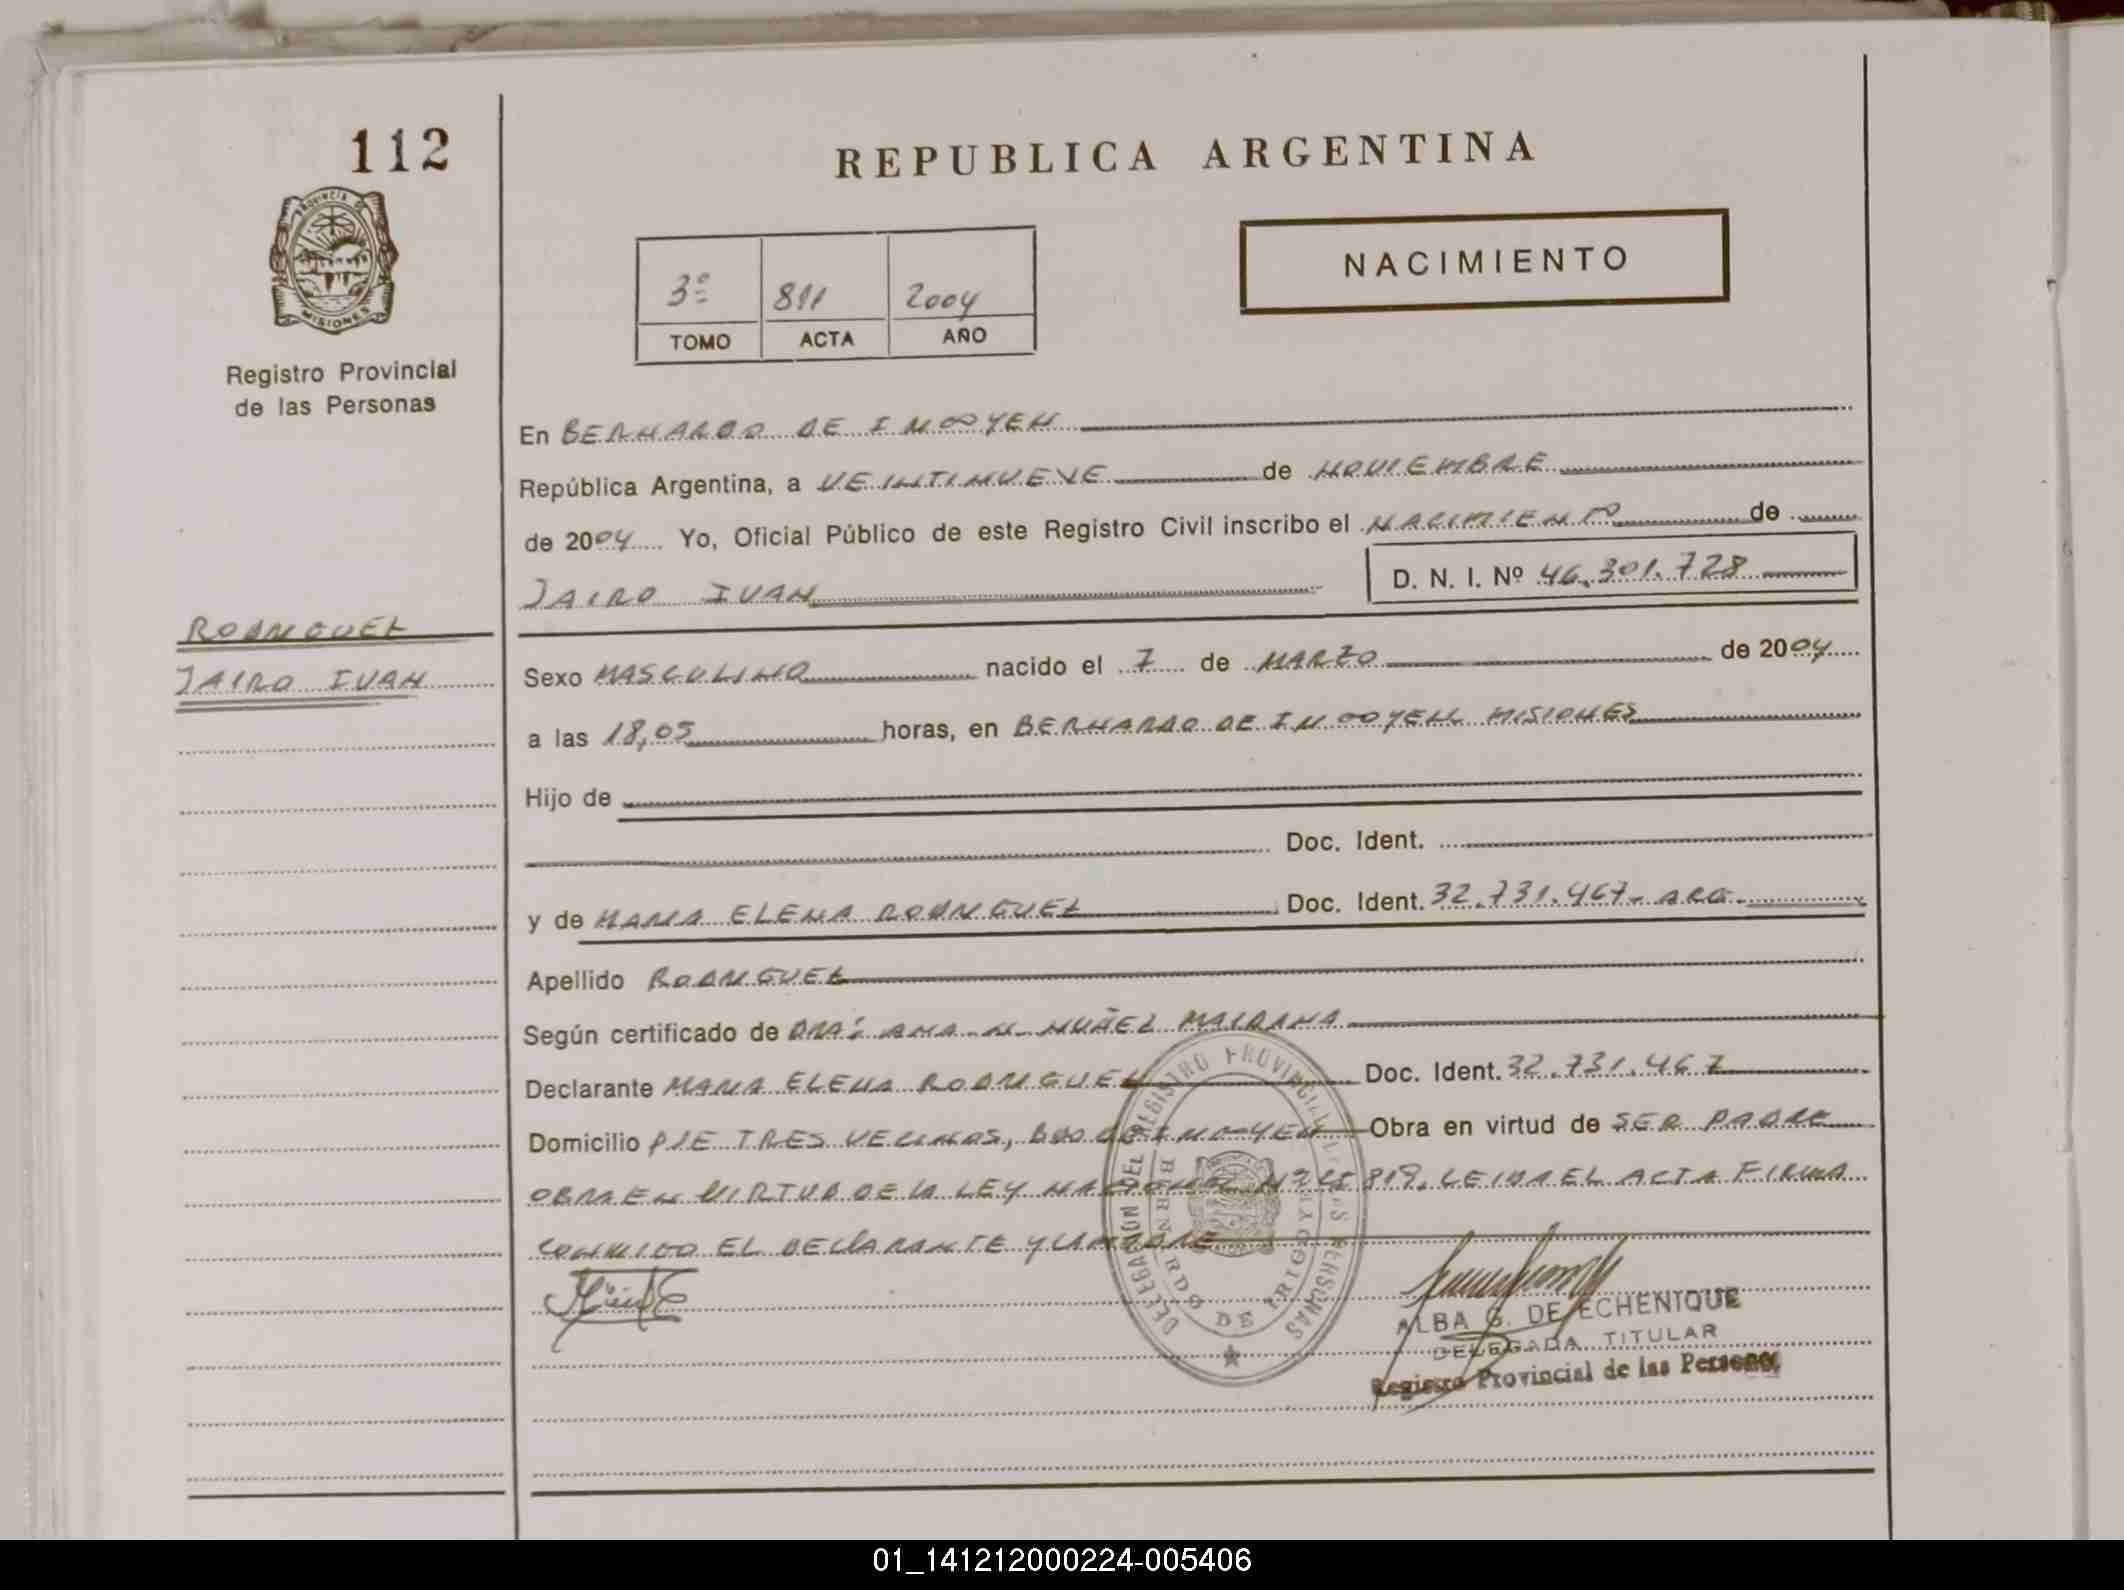 112
REPUBLICA ARGENTINA
PROVINCIA DE
MISIONES
Registro Provincial
de las Personas
NACIMIENTO
3º 811 2004
TOMO ACTA AÑO
En BERNARDO DE IRIGOYEN
República Argentina, a VEINTINUEVE de NOVIEMBRE
de 2004 Yo, Oficial Público de este Registro Civil inscribo el NACIMIENTO de
JAIRO IVAN
D. N. I. Nº 46.301.728
RODRIGUEZ
JAIRO IVAN
Sexo MASCULINO nacido el 7 de MARZO de 2004
a las 18,05 horas, en BERNARDO DE IRIGOYEN MISIONES
Hijo de
Doc. Ident.
y de MARIA ELENA RODRIGUEZ Doc. Ident. 32.731.467- ARG.
Apellido RODRIGUEZ
Según certificado de DRA: ANA N. NUÑEZ MAIDANA
Declarante MARIA ELENA RODRIGUEZ Doc. Ident. 32.731.467
Domicilio PJE TRES VECINOS, BDO DE IRIGOYEN Obra en virtud de SER PADRE
OBRA EN VIRTUD DE LA LEY NACIONAL Nº 25819. LEIDA EL ACTA FIRMA
CONMIGO EL DECLARANTE Y LA MADRE
DELEGACION DEL REGISTRO PROVINCIAL DE LAS PERSONAS
BERNARDO DE IRIGOYEN
ALBA G. DE ECHENIQUE
DELEGADA TITULAR
Registro Provincial de las Personas
01_141212000224-005406